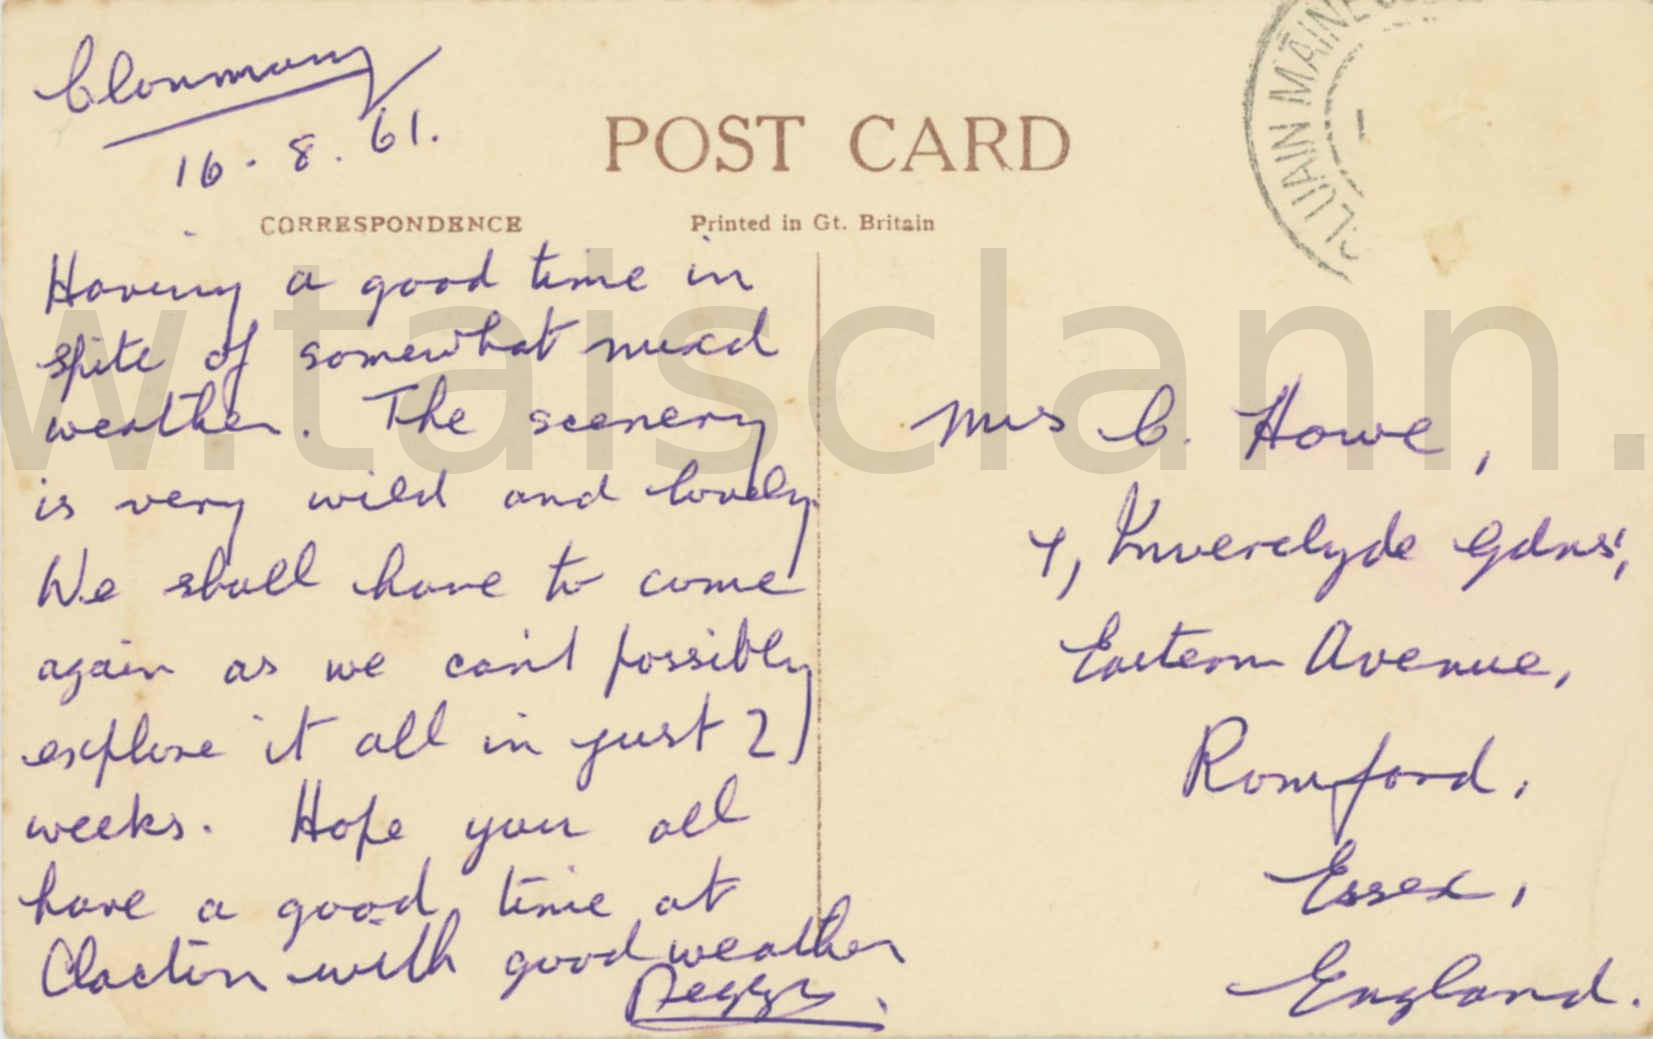 Clonmany
16.8.61.
POST CARD
CORRESPONDENCE
Printed in Gt. Britain
LUAIN MÁINE
Having a good time in
spite of somewhat mixed
weather. The scenery
is very wild and lovely.
We shall have to come
again as we can't possibly
explore it all in just 2
weeks. Hope you all
have a good time at
Clacton with good weather
Peggy.
Mrs C. Howe,
Inverclyde Gdns,
Eastern Avenue,
Romford,
Essex,
England.
w.taisclann.